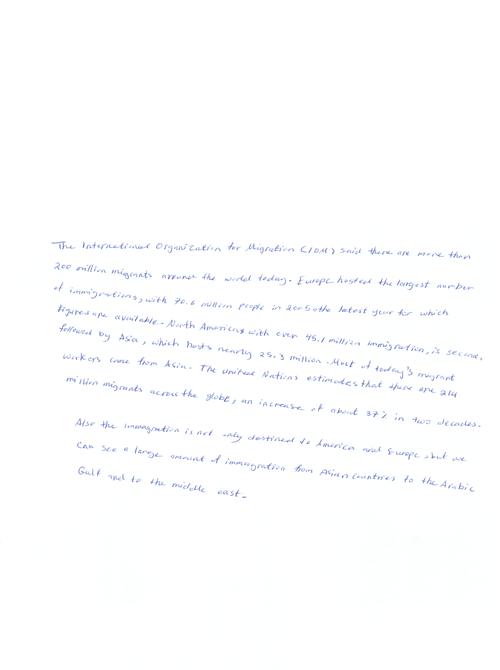 The International Organization for Migration (IOM) said there are more than
200 million migrants around the world today. Europe hosted the largest number
of immigrations, with 70.6 million people in 2005 the latest year for which
figures are available. North America, with over 45.1 million immigration, is second,
followed by Asia, which hosts nearly 25.3 million. Most of today's migrant
workers come from Asia. The United Nations estimates that there are 214
million migrants across the globe, an increase of about 37% in two decades.
Also the immigration is not only destined to America and Europe, but we
can see a large amount of immigration from Asian countries to the Arabic
Gulf and to the middle east.